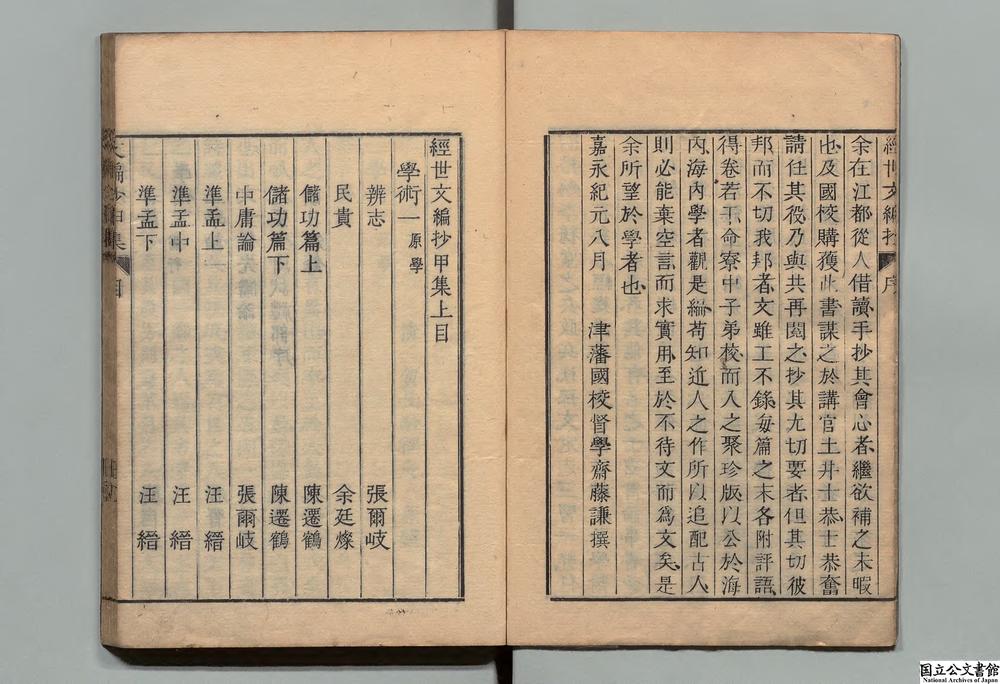 經世文編抄 序
余在江都從人借讀手抄其會心者繼欲補之未暇
也及國校購獲此書謀之於講官土井士恭士恭奮
請任其役乃與共再閱之抄其尤切要者但其切彼
邦而不切我邦者文雖工不錄每篇之末各附評語
得卷若干命寮中子弟校而入之聚珍版以公於海
內海內學者觀是編苟知近人之作所以追配古人
則必能棄空言而求實用至於不待文而為文矣是
余所望於學者也
嘉永紀元八月 津藩國校督學齋藤謙撰
經世文編抄甲集上目
學術一 原學
辨志 張爾岐
民貴 余廷燦
儲功篇上 陳遷鶴
儲功篇下 陳遷鶴
中庸論 張爾岐
準孟上 汪縉
準孟中 汪縉
準孟下 汪縉
文編抄甲集 目
国立公文書館
National Archives of Japan